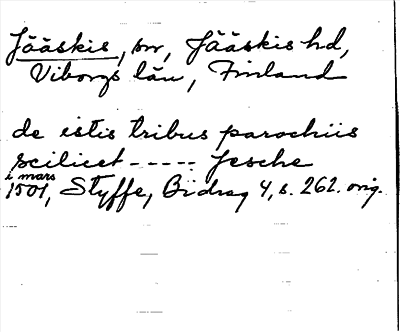 Jääskis, sn, Jääskis hd,
Viborgs län, Finland
de istis tribus parochiis
scilicet ----- Jesche
i mars
1501, Styffe, Bidrag 4, s. 262. orig.